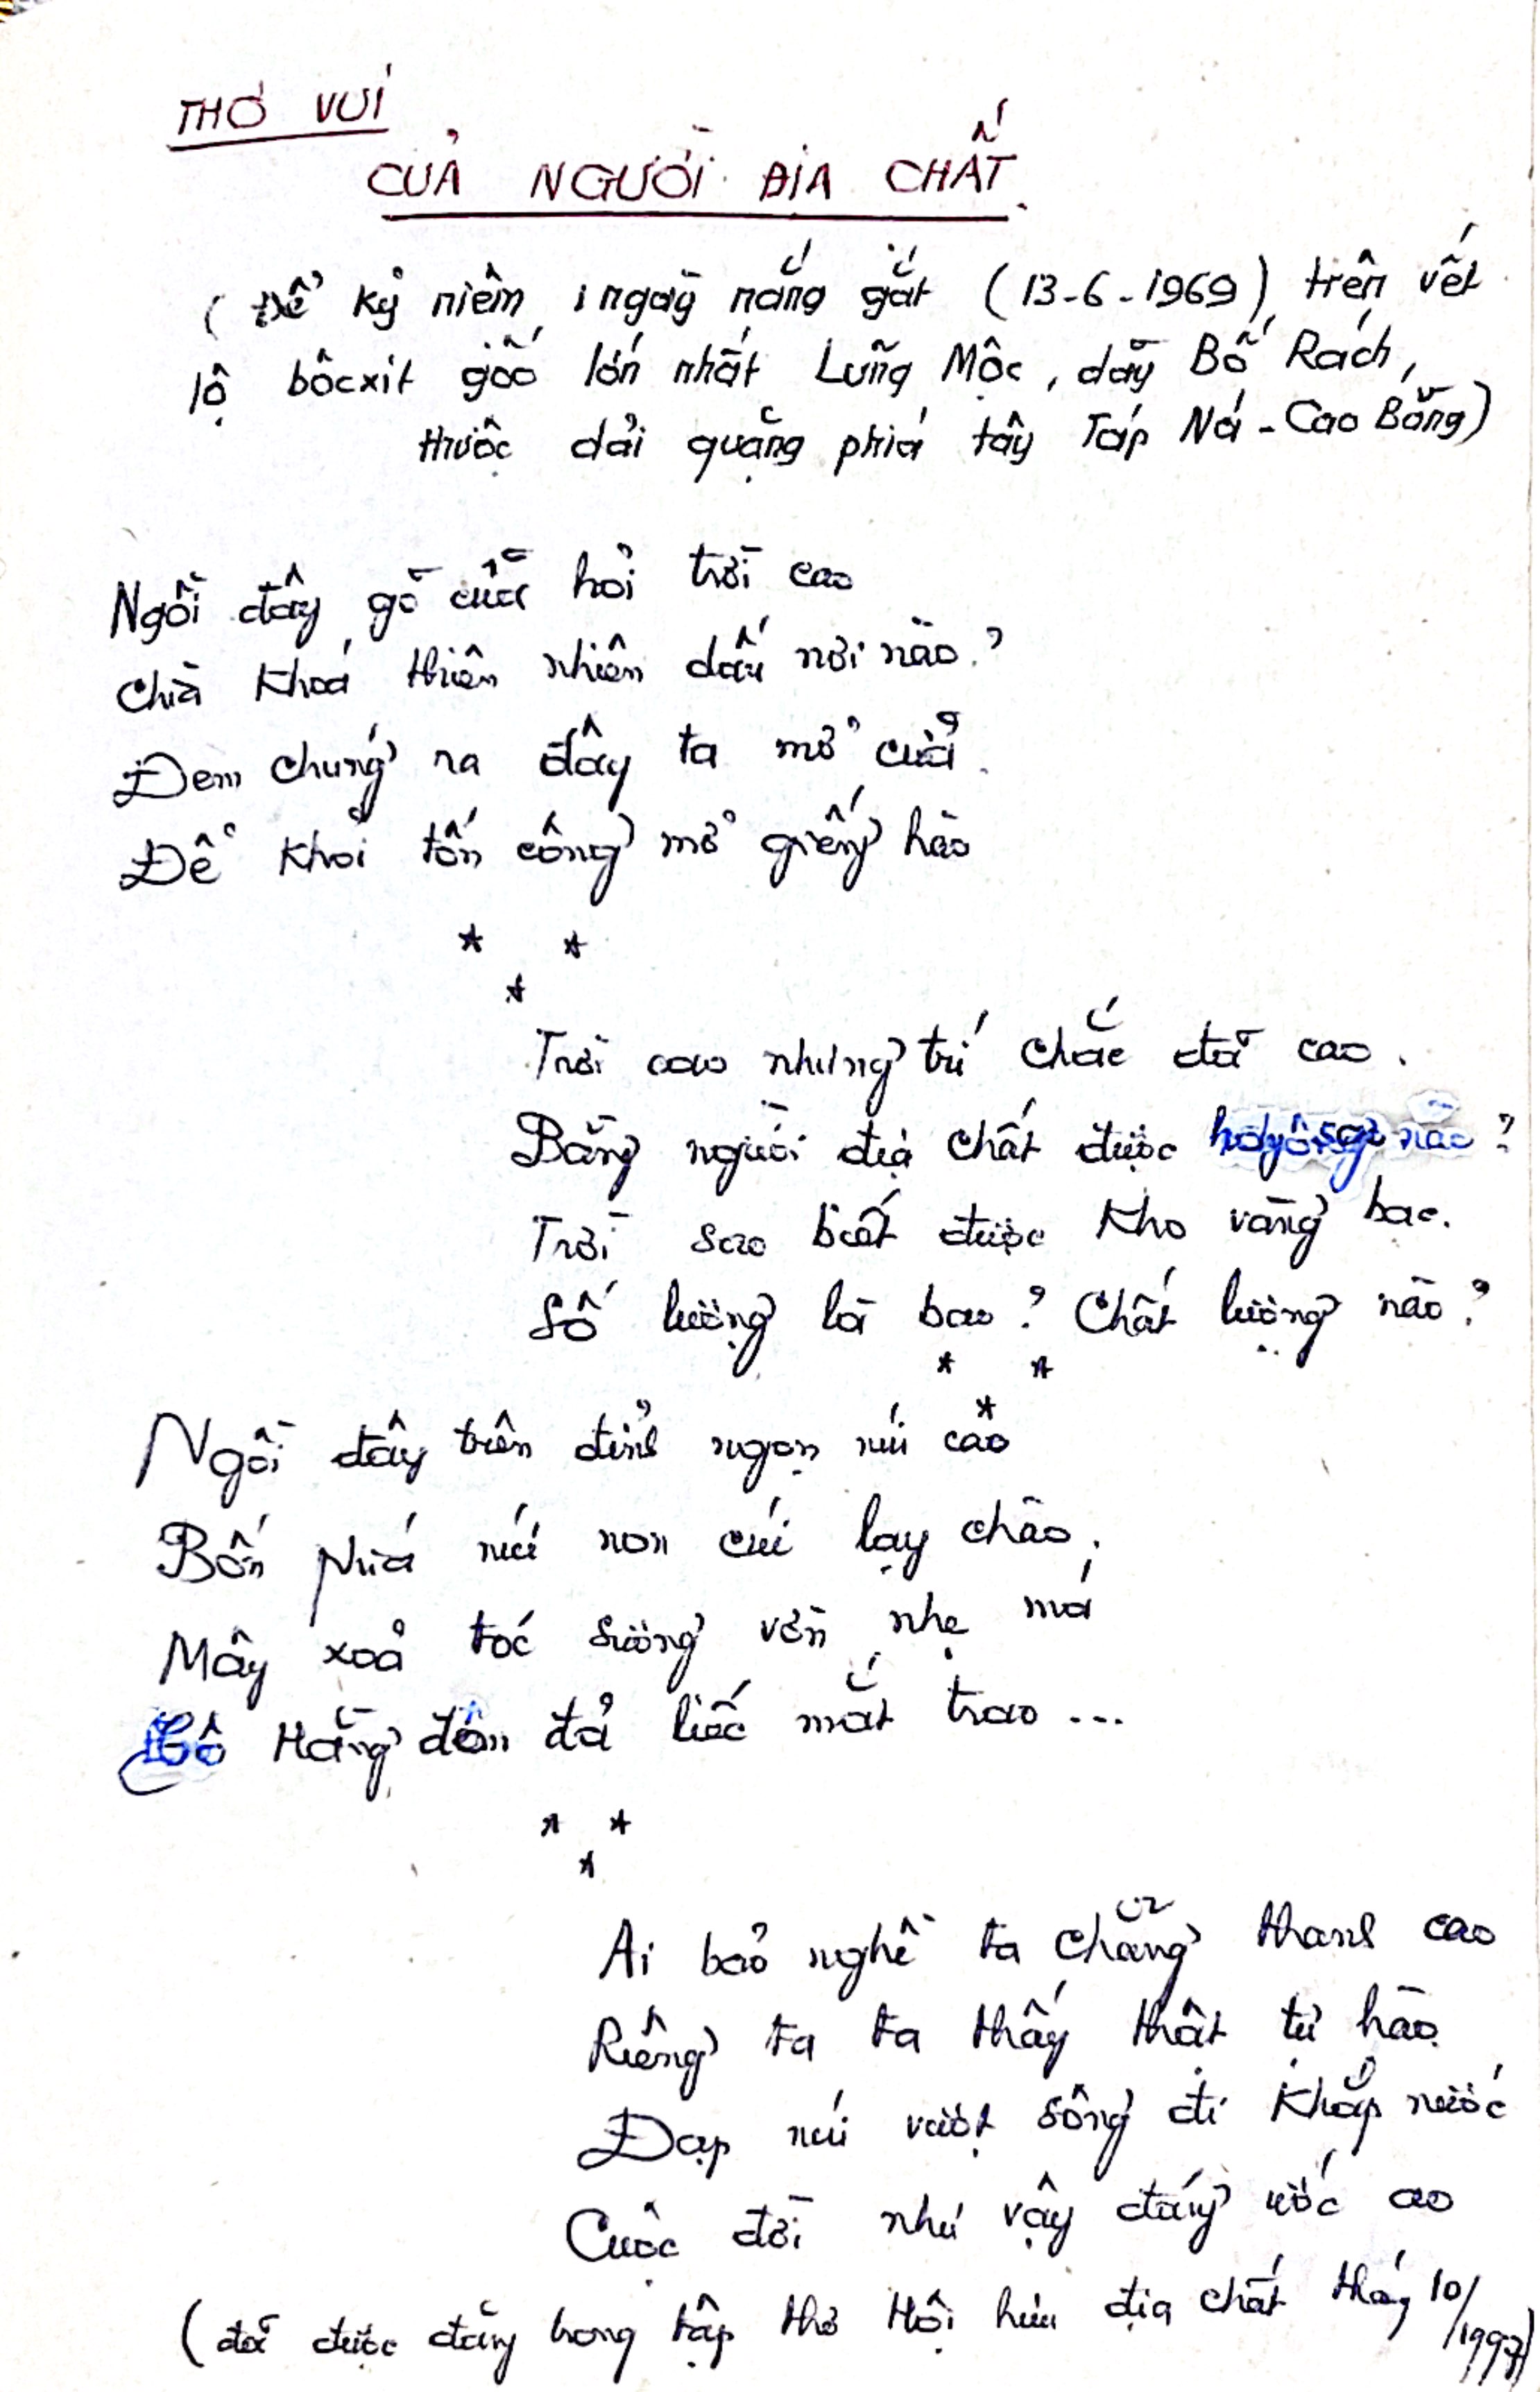 THƠ VUI
CỦA NGƯỜI ĐỊA CHẤT.
(Để kỷ niệm 1 ngày nắng gắt (13-6-1969) trên vết
lộ bôcxit gốc lớn nhất Lũng Mộc, dãy Bố Rách,
thuộc dải quặng phía tây Táp Ná - Cao Bằng)
Ngồi đây gõ cửa hỏi trời cao
Chìa khoá thiên nhiên dấu nơi nào?
Đem chúng ra đây ta mở cửa.
Để khỏi tốn công mở giếng hào
* *
*
Trời cao nhưng trí chắc đã cao.
Bằng người địa chất được không nào?
Trời sao biết được kho vàng bạc.
Số lượng là bao? Chất lượng nào?
* *
*
Ngồi đây trên đỉnh ngọn núi cao
Bốn phía núi non cúi lạy chào.
Mây xoả tóc sương vờn nhẹ má
Cô Hằng đon đả liếc mắt trao...
* *
*
Ai bảo nghề ta chẳng thanh cao
Riêng ta ta thấy thật tự hào.
Đạp núi vượt sông đi khắp nước
Cuộc đời như vậy đáng ước ao
(đã được đăng trong tập thơ Hội hưu địa chất tháng 10/1997)